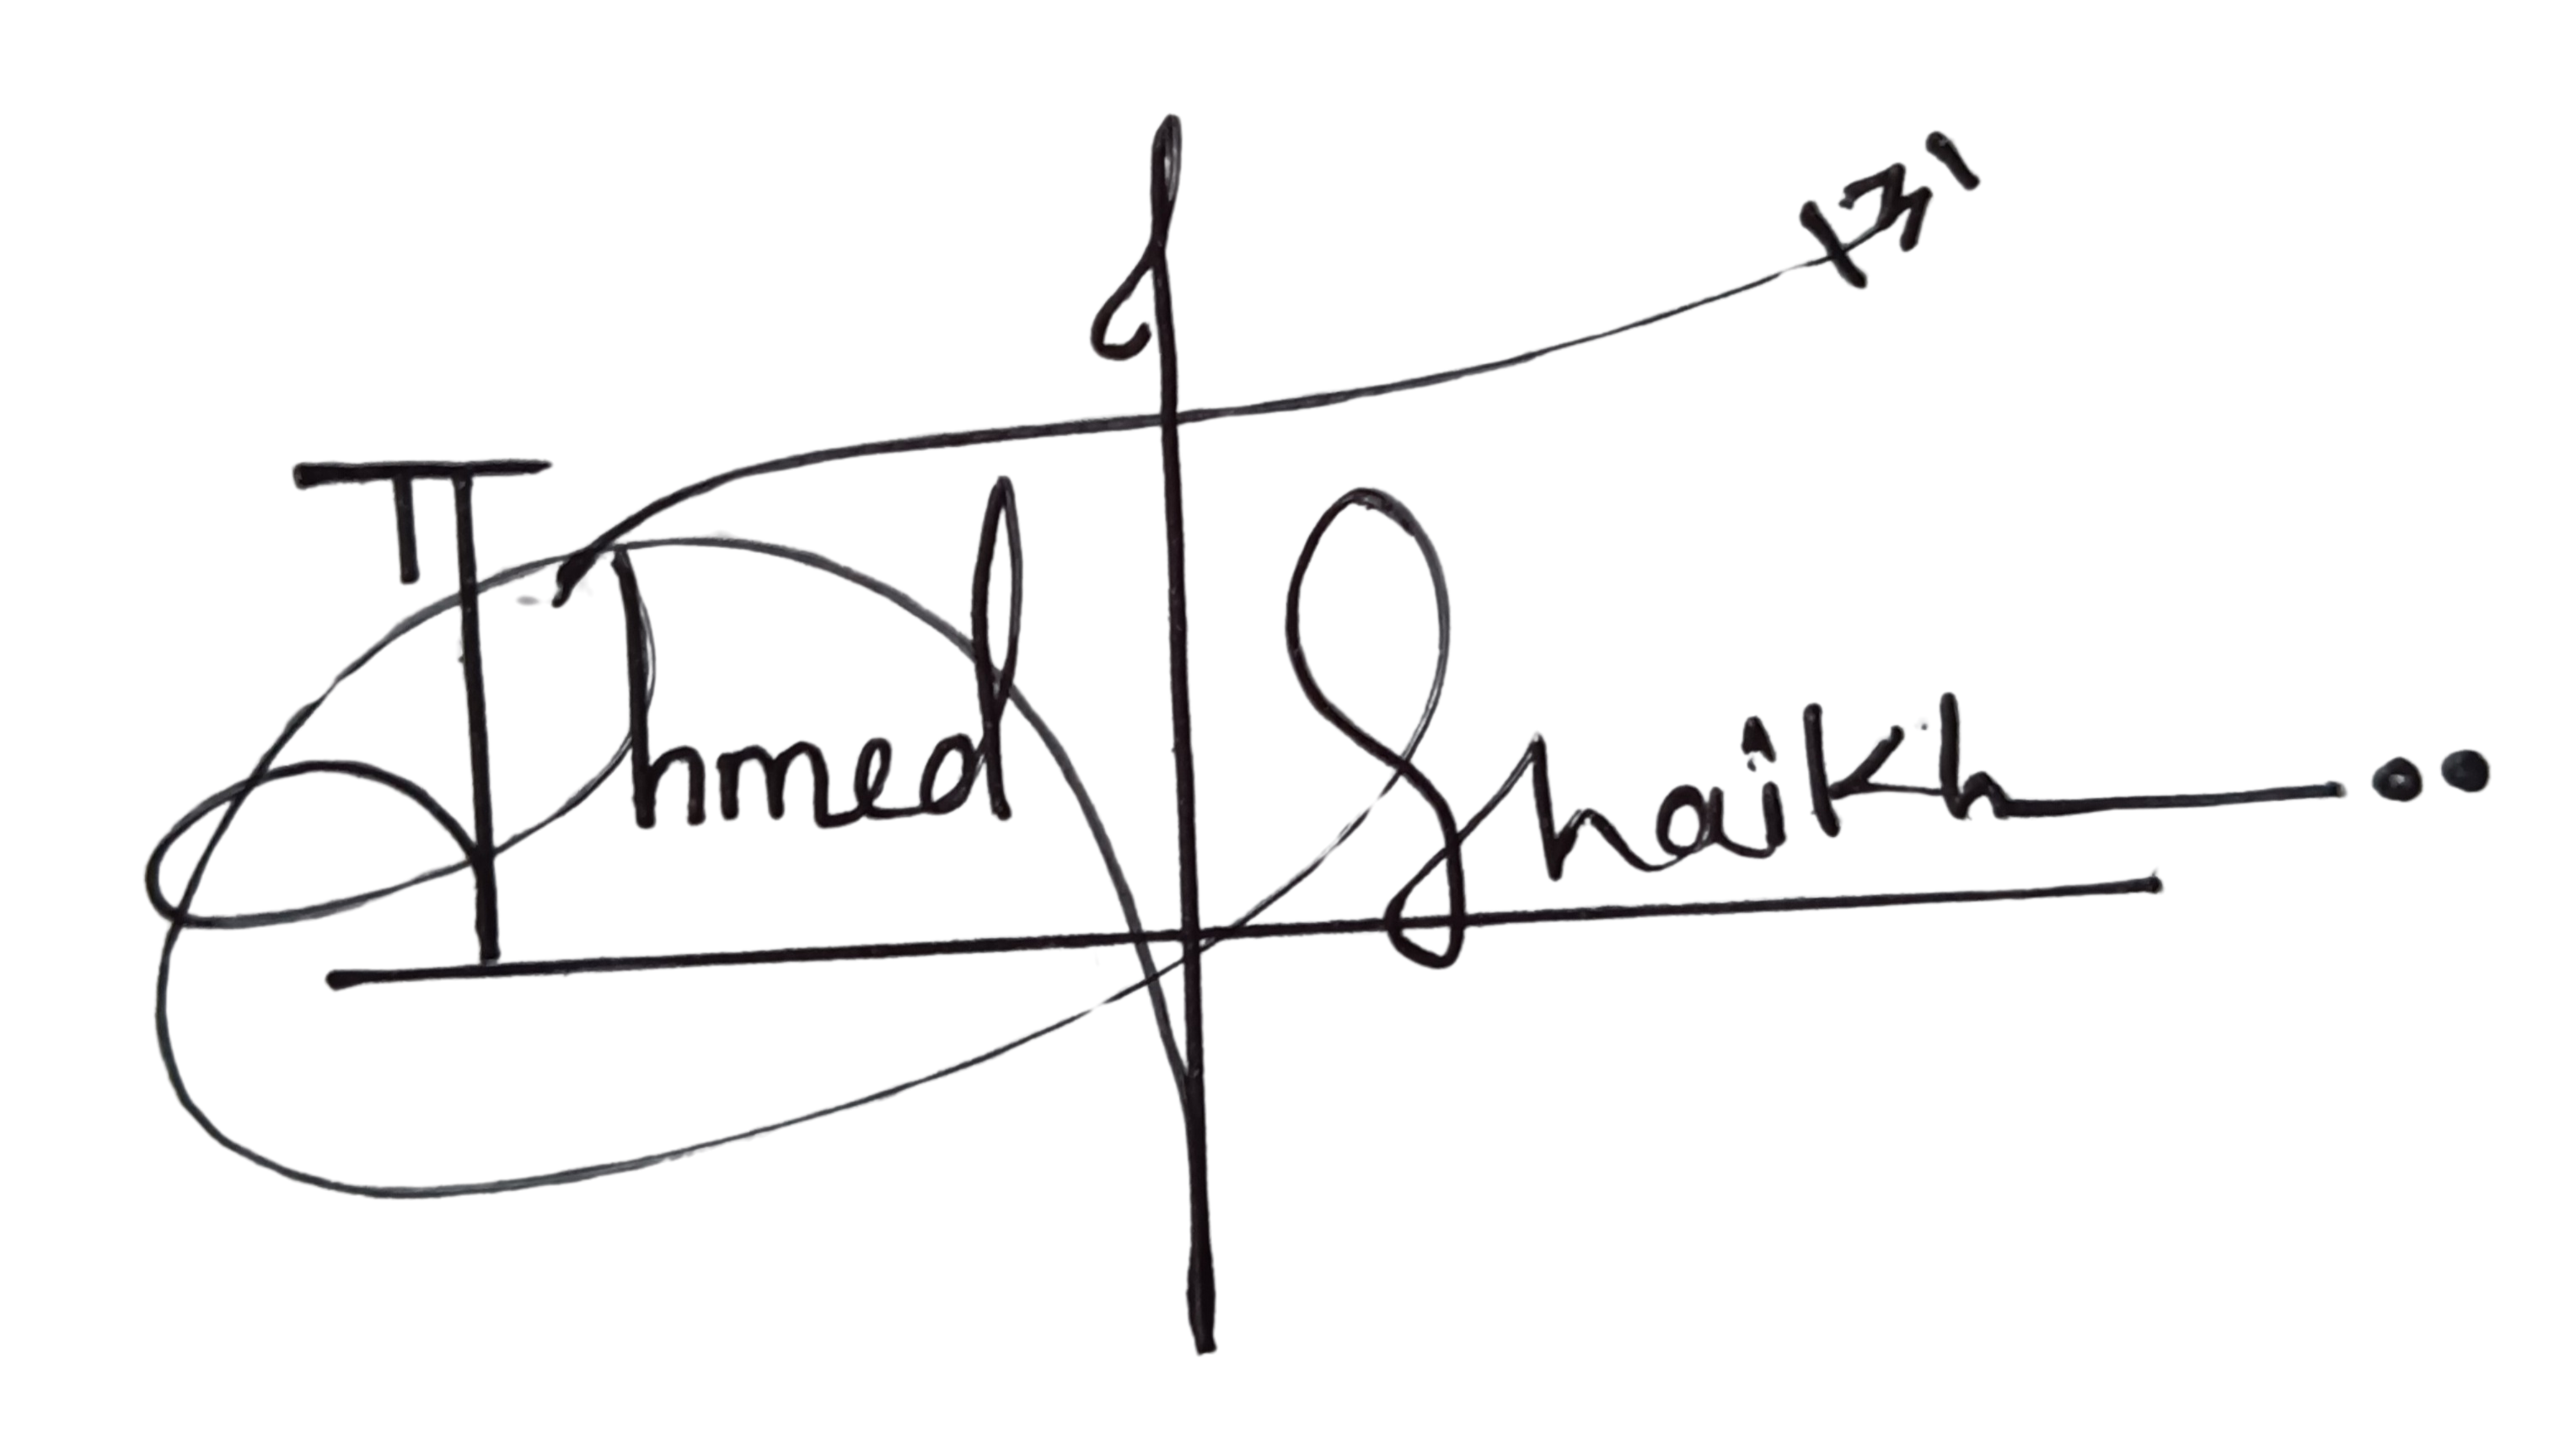 Ahmed Shaikh